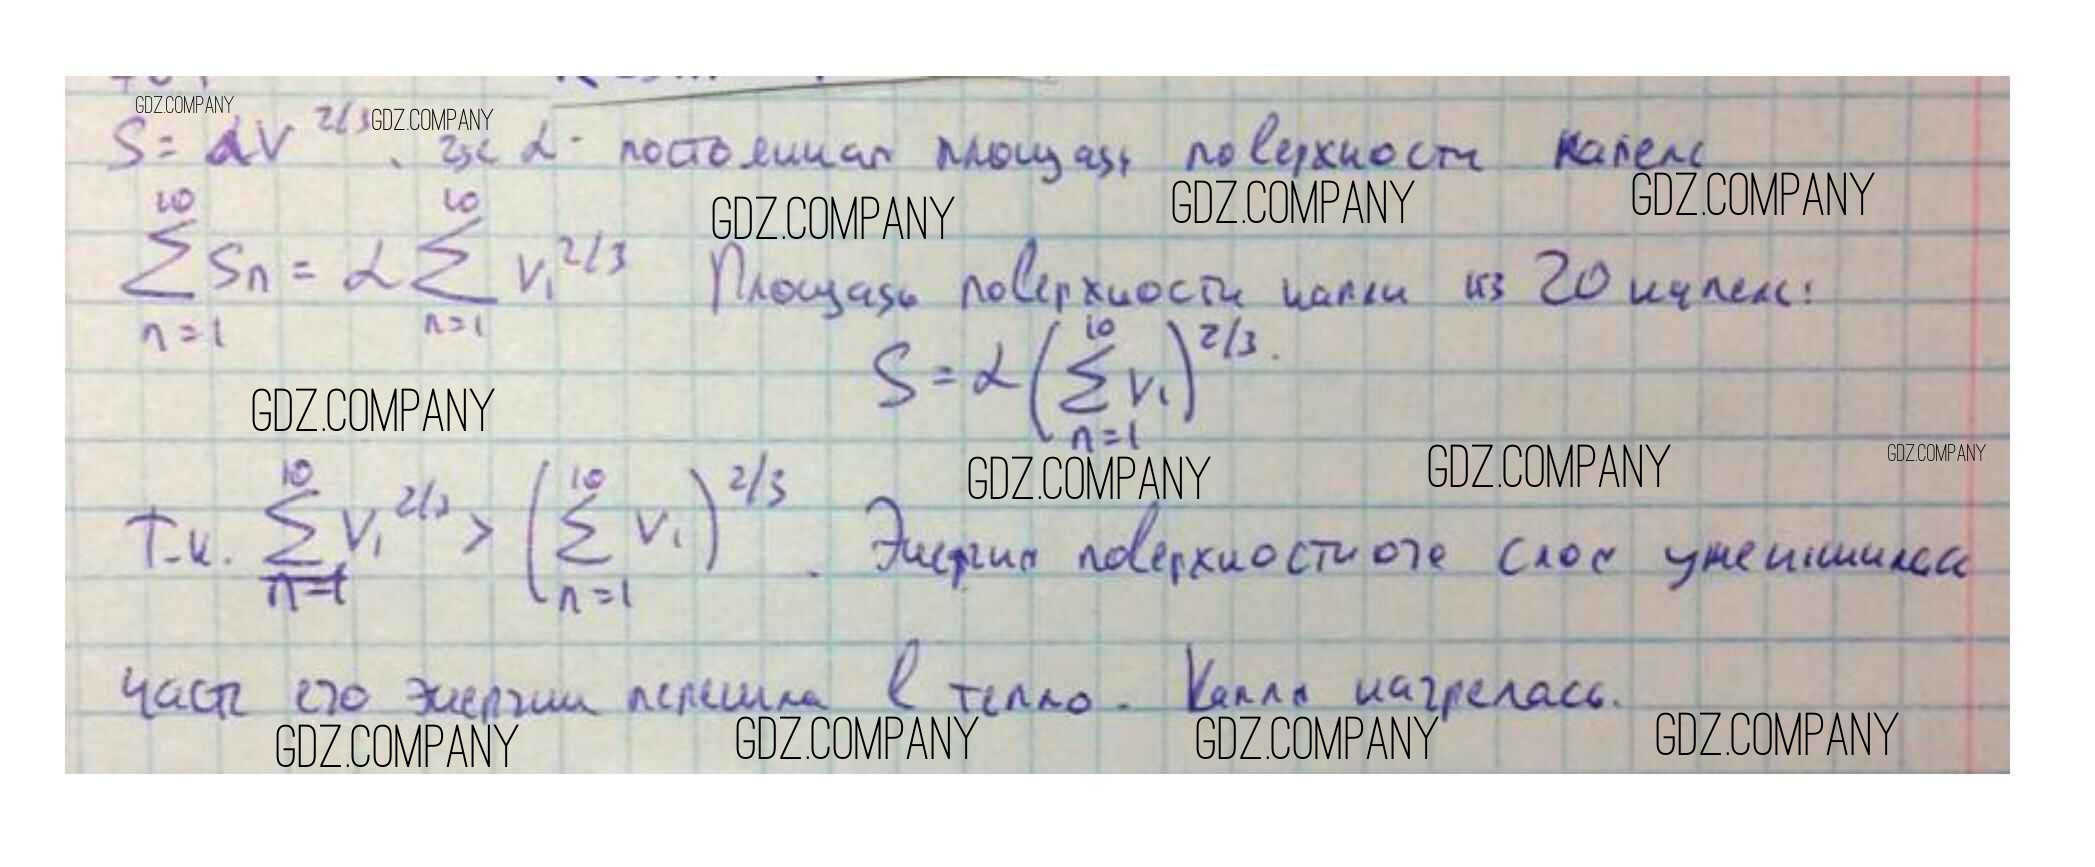 GDZ.COMPANY GDZ.COMPANY
S = αV^2/3. где α - постоянная площадь поверхности капель
GDZ.COMPANY GDZ.COMPANY GDZ.COMPANY
10 ∑ n=1 Sn = α 10 ∑ n=1 V₁^2/3 Площадь поверхности капли из 20 капель:
S = α (10 ∑ n=1 V₁)^2/3.
GDZ.COMPANY
GDZ.COMPANY GDZ.COMPANY GDZ.COMPANY
Т.к. 10 ∑ n=1 V₁^2/3 > (10 ∑ n=1 V₁)^2/3. Энергия поверхностного слоя уменьшилась
часть его энергии перешла в тепло. Капля нагрелась.
GDZ.COMPANY GDZ.COMPANY GDZ.COMPANY GDZ.COMPANY